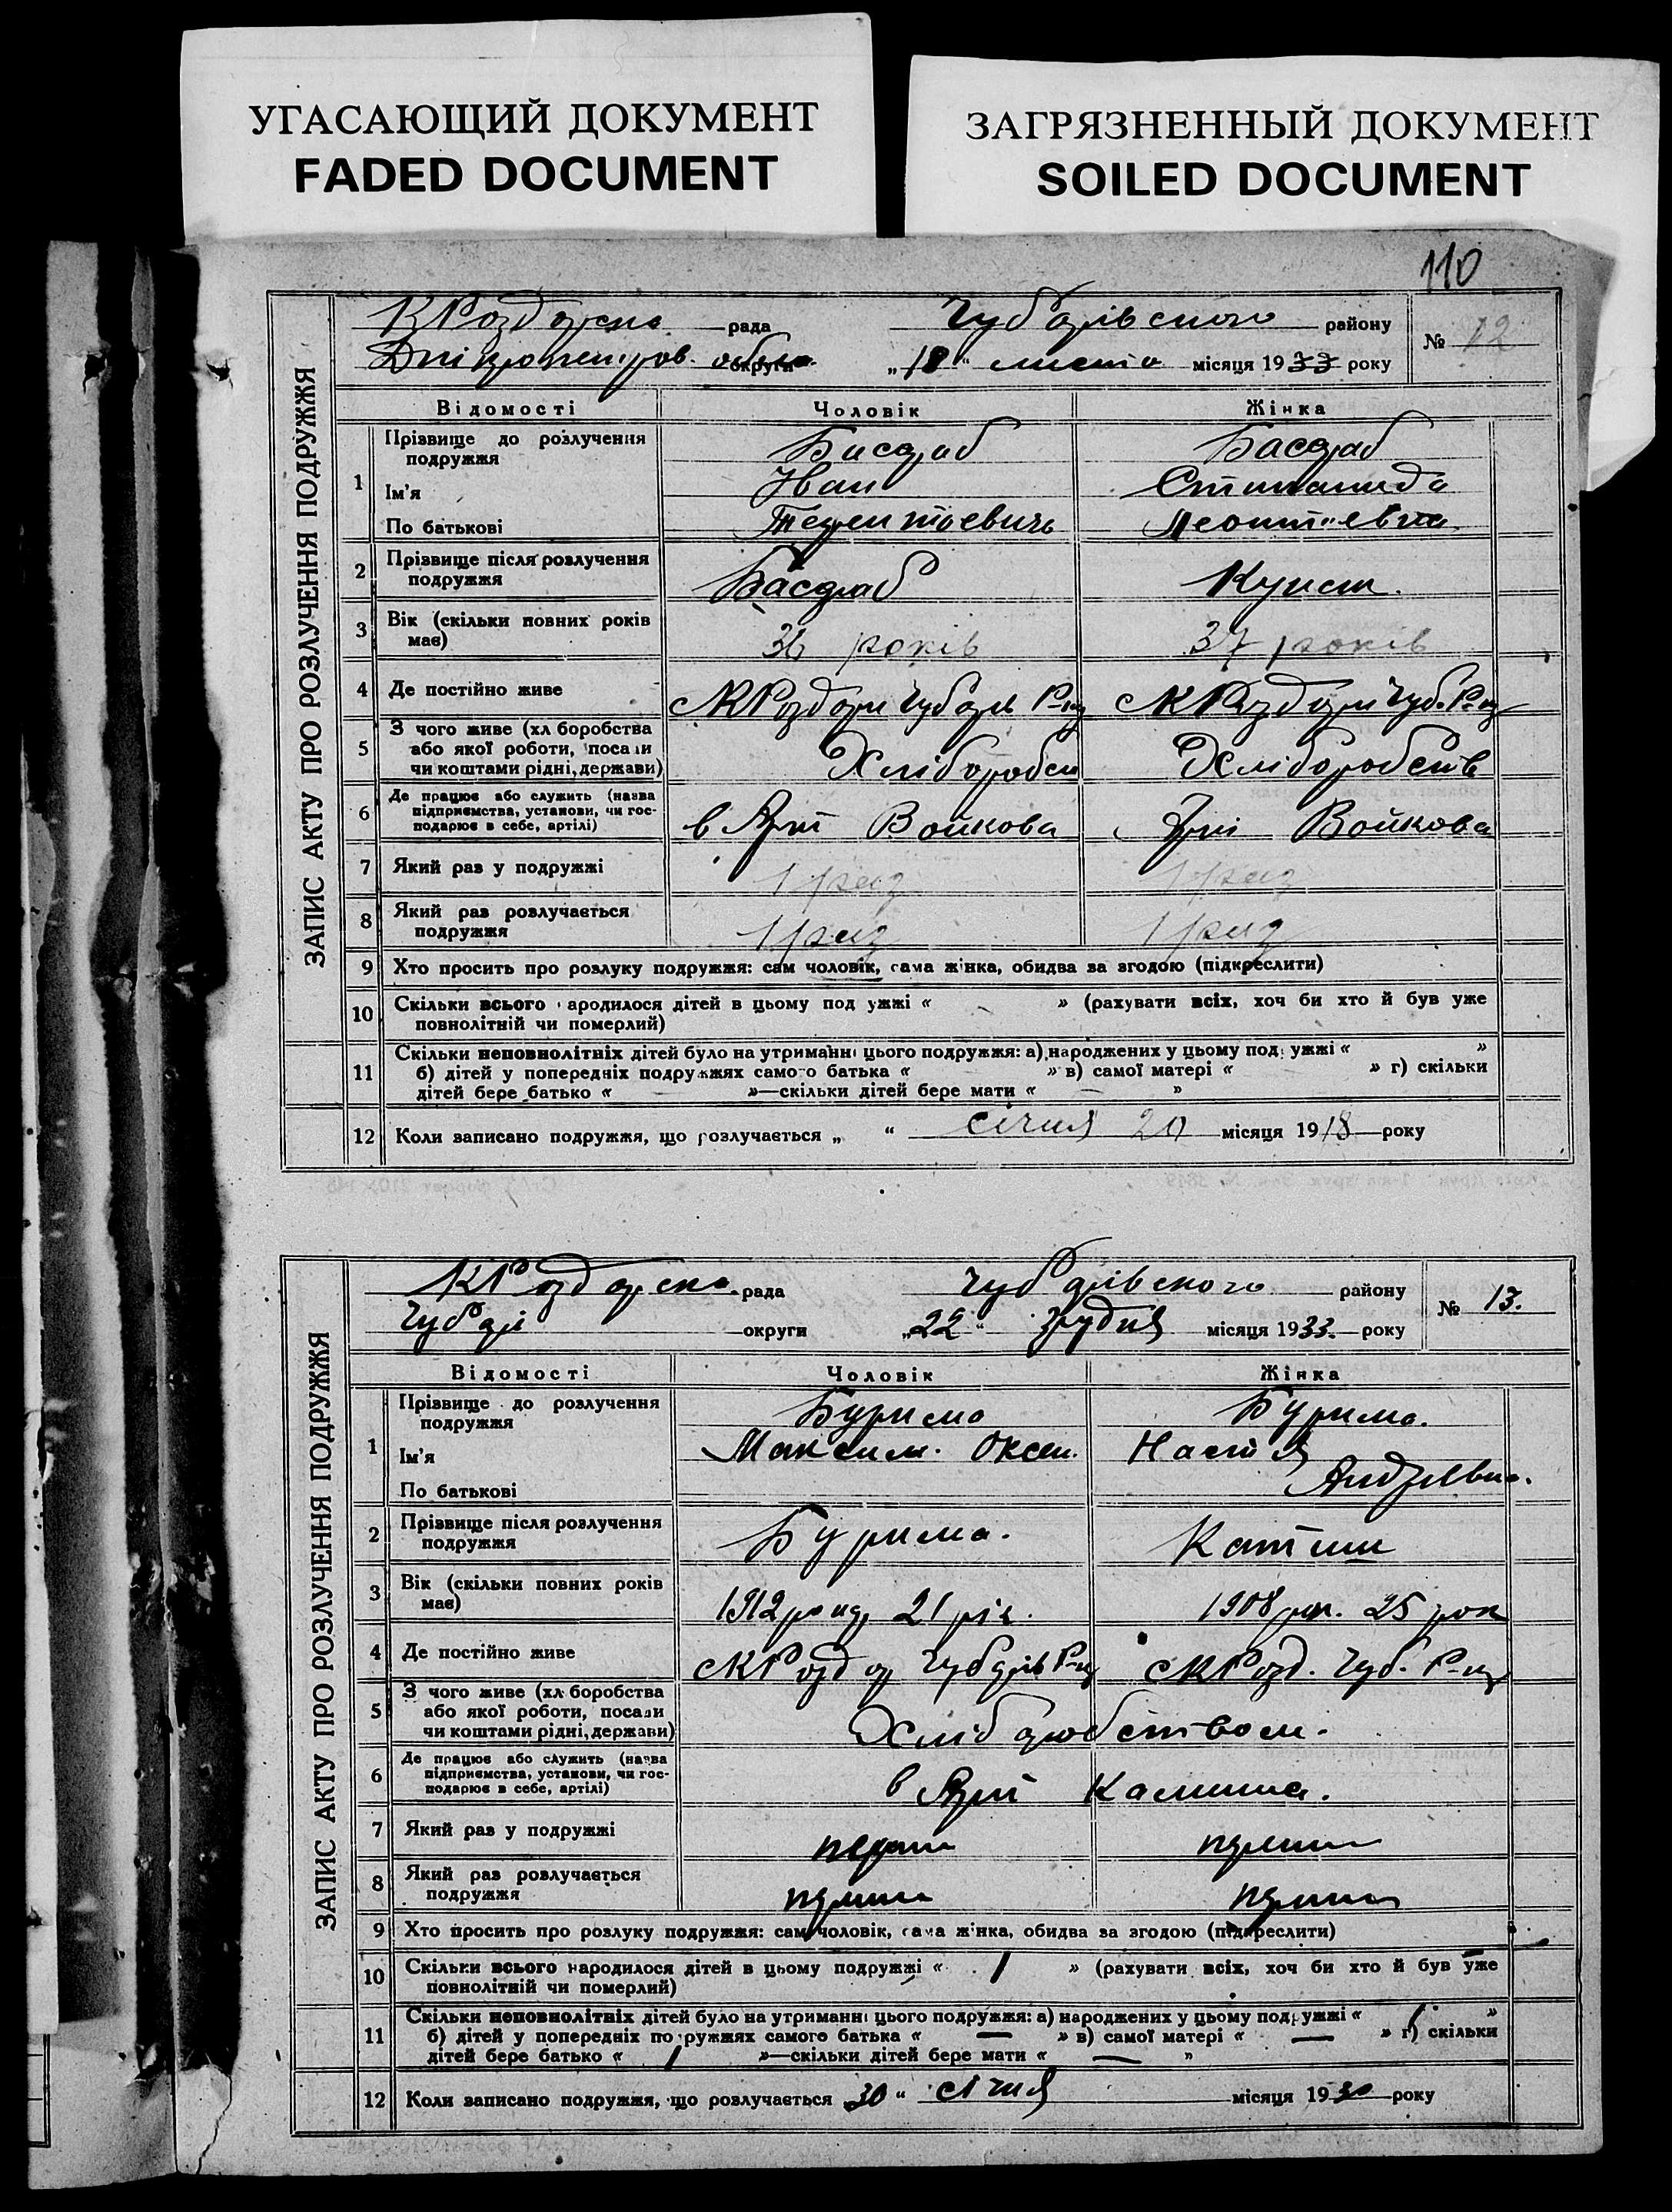 УГАСАЮЩИЙ ДОКУМЕНТ
FADED DOCUMENT
ЗАГРЯЗНЕННЫЙ ДОКУМЕНТ
SOILED DOCUMENT
110
ЗАПИС АКТУ ПРО РОЗЛУЧЕННЯ ПОДРУЖЖЯ
КРоздорська рада Чубарівского району
№ 12
Дніпропетров. округи „18“ листо місяця 1933 року
Відомості Чоловік Жінка
1 Прізвище до розлучення подружжя Басараб Басараб
Ім'я Иван
По батькові Терентьевичь Леонтиевна
2 Прізвище після розлучення подружжя Басараб
3 Вік (скільки повних років має) 36 років 37 років
4 Де постійно живе с КРоздори Чубарь Р-ну с КРоздори Чуб. Р-ну
5 З чого живе (хліборобства або якої роботи, посади чи коштами рідні, держави) Хлібороб Хліборобств
6 Де працює або служить (назва підприємства, установи, чи господарює в себе, артілі) в Арт Войкова Арт Войкова
7 Який раз у подружжі 1 раз 1 раз
8 Який раз розлучається подружжя 1 раз 1 раз
9 Хто просить про розлуку подружжя: сам чоловік, сама жінка, обидва за згодою (підкреслити)
10 Скільки всього народилося дітей в цьому подружжі « » (рахувати всіх, хоч би хто й був уже
повнолітній чи померлий)
11 Скільки неповнолітніх дітей було на утриманні цього подружжя: а) народжених у цьому подружжі « »
б) дітей у попередніх подружжях самого батька « » в) самої матері « » г) скільки
дітей бере батько « »—скільки дітей бере мати « — »
12 Коли записано подружжя, що розлучається „ “ січня 20 місяця 1918 року
ЗАПИС АКТУ ПРО РОЗЛУЧЕННЯ ПОДРУЖЖЯ
КРоздорська рада Чубарівського району
№ 13.
Чубарі округи „22“ грудня місяця 1933. року
Відомості Чоловік Жінка
1 Прізвище до розлучення подружжя Бурима Бурима.
Ім'я Максим. Оксен. Настя
По батькові Андріевна.
2 Прізвище після розлучення подружжя Бурима.
3 Вік (скільки повних років має) 1912 21 рік. 1908 25 рок
4 Де постійно живе с КРоздор Чубарів Р-ну с КРозд. Чуб. Р-ну
5 З чого живе (хліборобства або якої роботи, посади чи коштами рідні, держави) Хліборобством.
6 Де працює або служить (назва підприємства, установи, чи господарює в себе, артілі) в Арт Калинина.
7 Який раз у подружжі перши перши
8 Який раз розлучається подружжя перши перши
9 Хто просить про розлуку подружжя: сам чоловік, сама жінка, обидва за згодою (підкреслити)
10 Скільки всього народилося дітей в цьому подружжі « 1 » (рахувати всіх, хоч би хто й був уже
повнолітній чи померлий)
11 Скільки неповнолітніх дітей було на утриманні цього подружжя: а) народжених у цьому подружжі « 1 »
б) дітей у попередніх подружжях самого батька « — » в) самої матері « — » г) скільки
дітей бере батько « 1 »—скільки дітей бере мати « — »
12 Коли записано подружжя, що розлучається „30“ січня місяця 1930 року